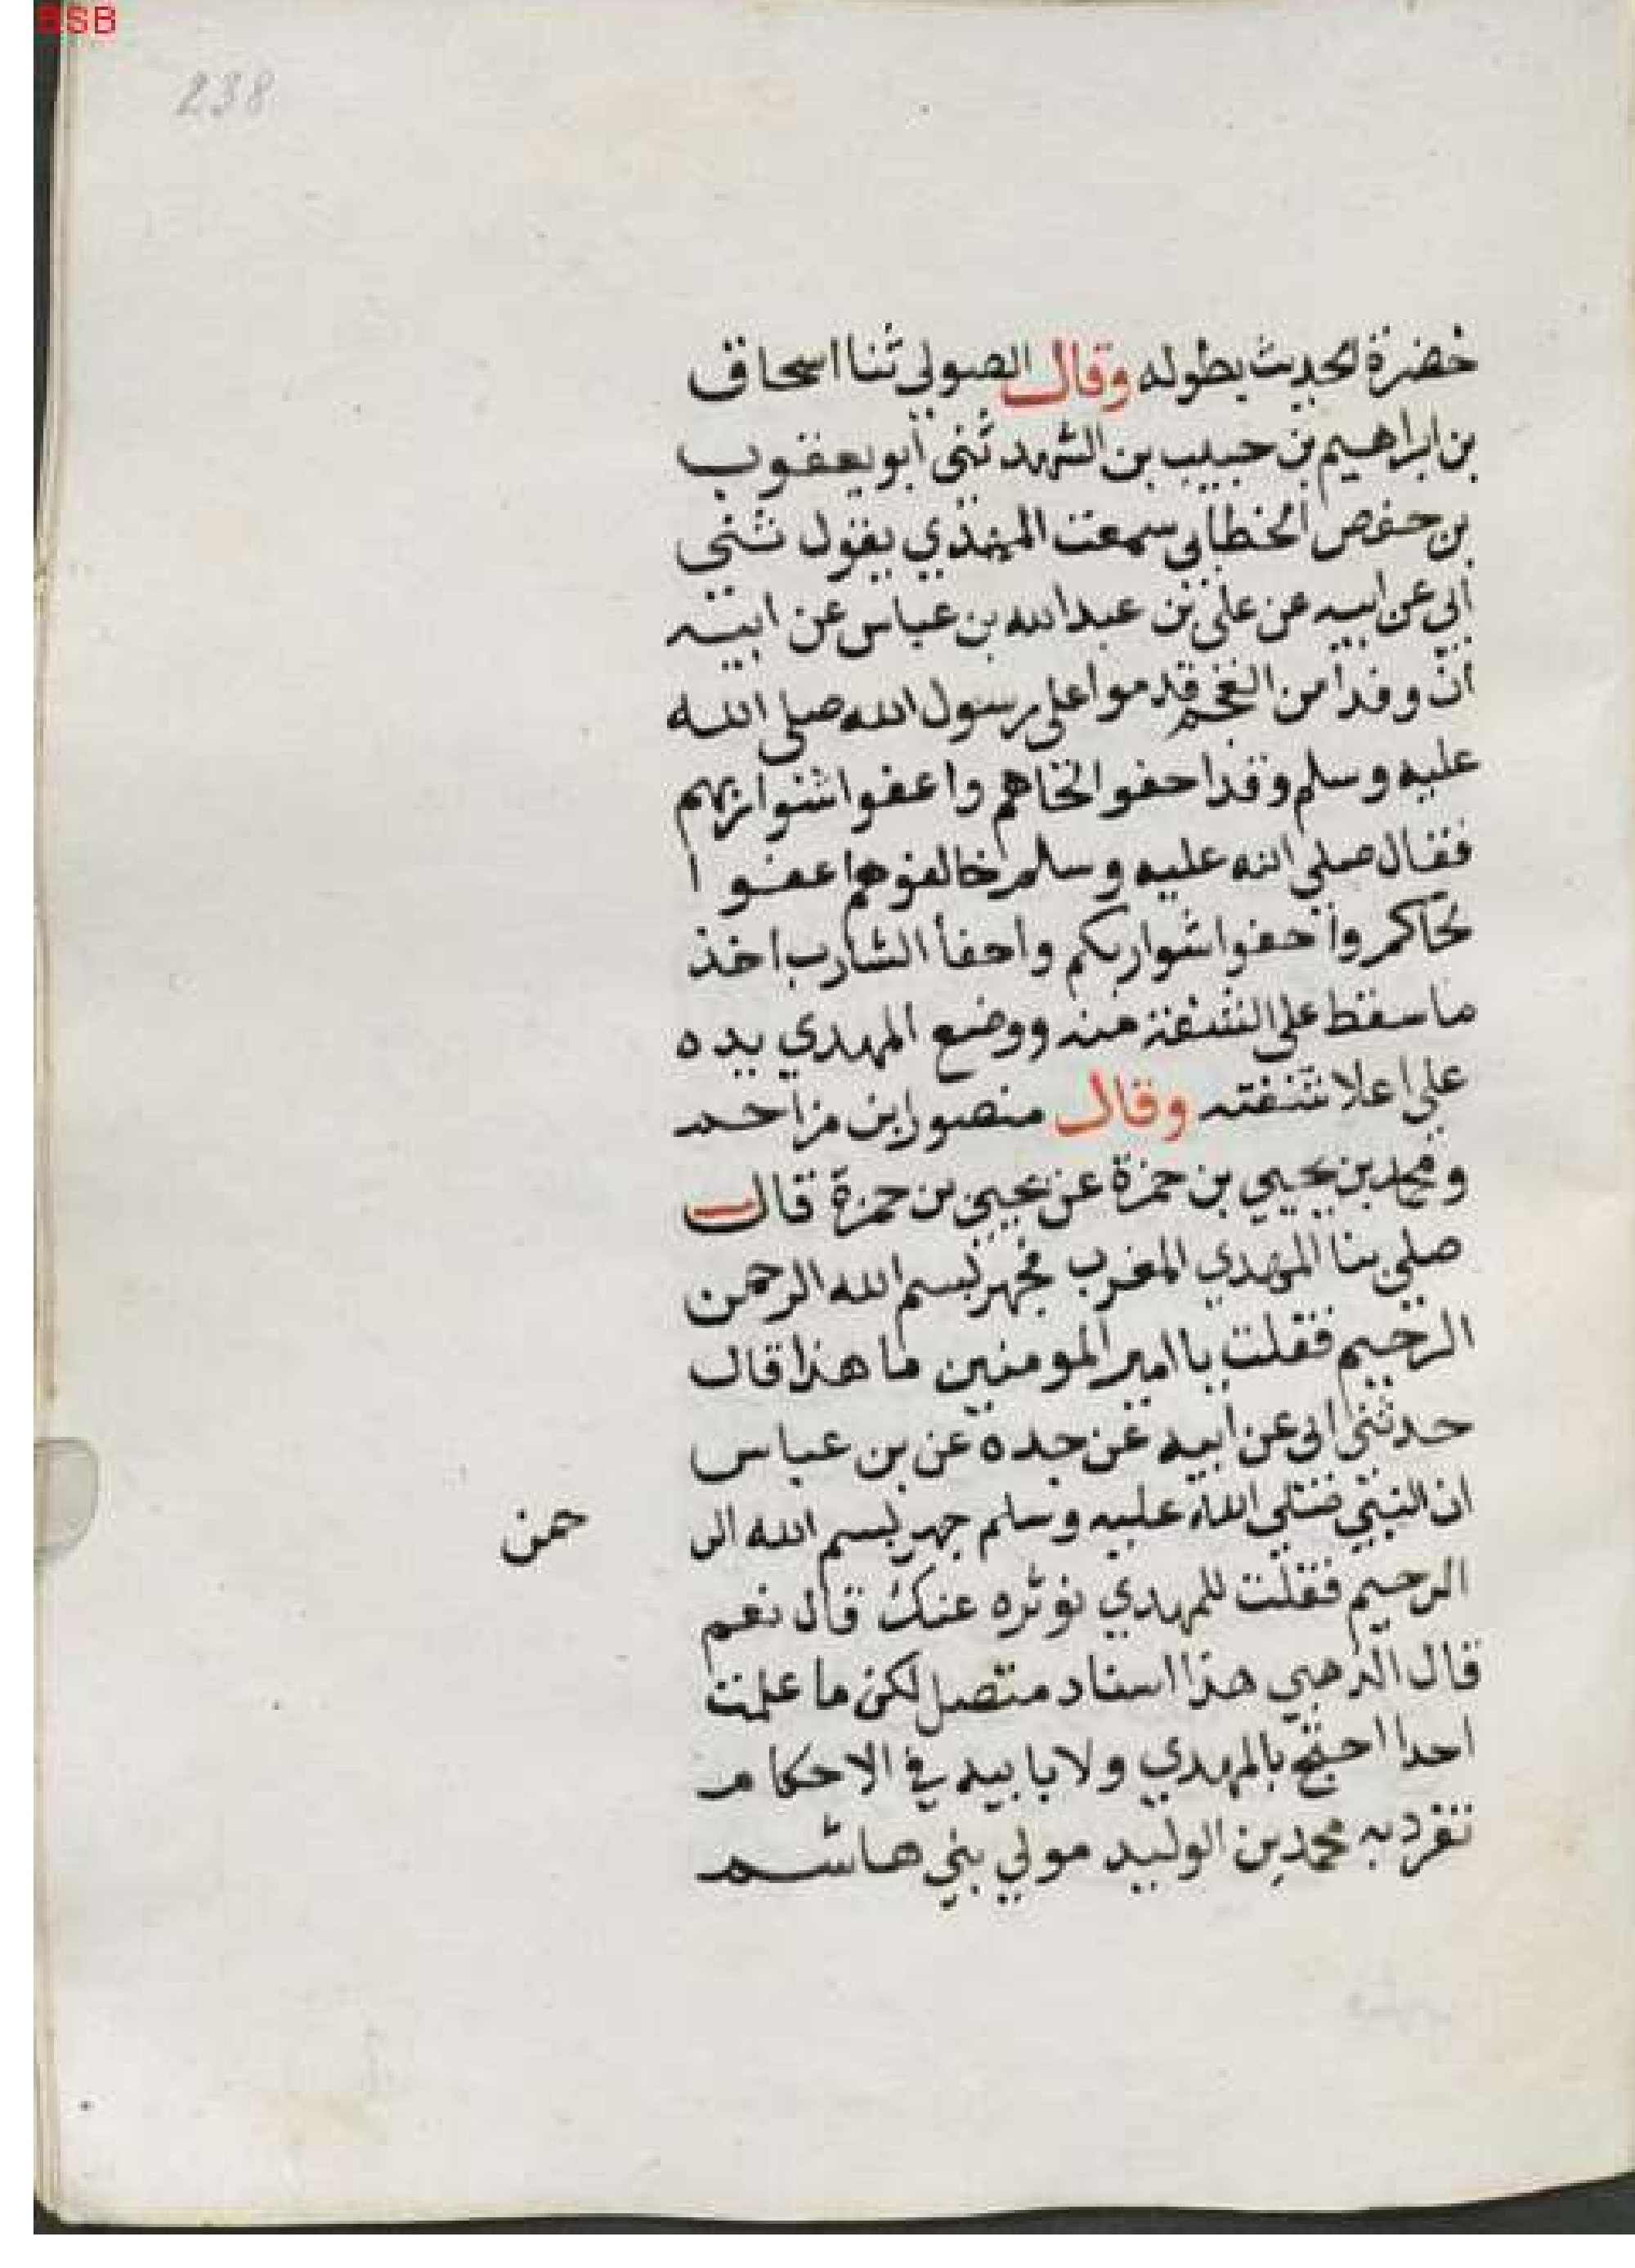 BSB
238
خضرة الحديث بطوله وقال الصولي ثنا اسحاق
بن ابراهيم بن حبيب بن الشهد ثنى أبو يعقوب
بن حفص الخطابي سمعت المهدي يقول ثني
ابي عن ابيه عن علي بن عبدالله بن عباس عن ابيه
ان وفدا من العجم قدموا على رسول الله صلى الله
عليه وسلم وقد احفوا لحاهم واعفوا شواربهم
فقال صلي الله عليه وسلم خالفوهم اعفوا
لحاكم واحفوا شواربكم واحفا الشارب اخذ
ما سقط على الشفة منه ووضع المهدي يده
علي اعلا شفته وقال منصور ابن مزاحم
ومحمد بن يحيي بن حمزة عن يحيي بن حمزة قال
صلي بنا المهدي المغرب فجهر بسم الله الرحمن
الرحيم فقلت يا امير المومنين ما هذا قال
حدثني ابي عن ابيه عن جده عن بن عباس
ان النبي صلي الله عليه وسلم جهر بسم الله الر
حمن
الرحيم فقلت للمهدي نوثره عنك قال نعم
قال الذهبي هذا اسناد متصل لكن ما علمت
احدا احتج بالمهدي ولا بابيه في الاحكام
تفرد به محمد بن الوليد مولي بني هاشم